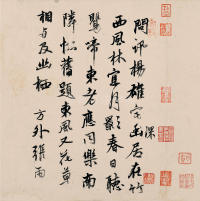 問訊楊雄宅幽居在竹
深
西風林宜月影春日聽
鶯啼東老應同樂南
隣松舊題東風又花草
相與及幽棲
方外張雨